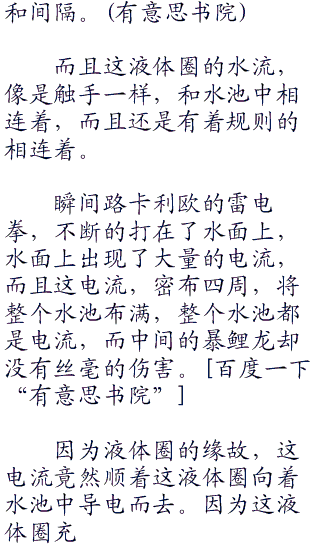 和间隔。(有意思书院)
而且这液体圈的水流，
像是触手一样，和水池中相
连着，而且还是有着规则的
相连着。
瞬间路卡利欧的雷电
拳，不断的打在了水面上，
水面上出现了大量的电流，
而且这电流，密布四周，将
整个水池布满，整个水池都
是电流，而中间的暴鲤龙却
没有丝毫的伤害。[百度一下
“有意思书院”]
因为液体圈的缘故，这
电流竟然顺着这液体圈向着
水池中导电而去。因为这液
体圈充